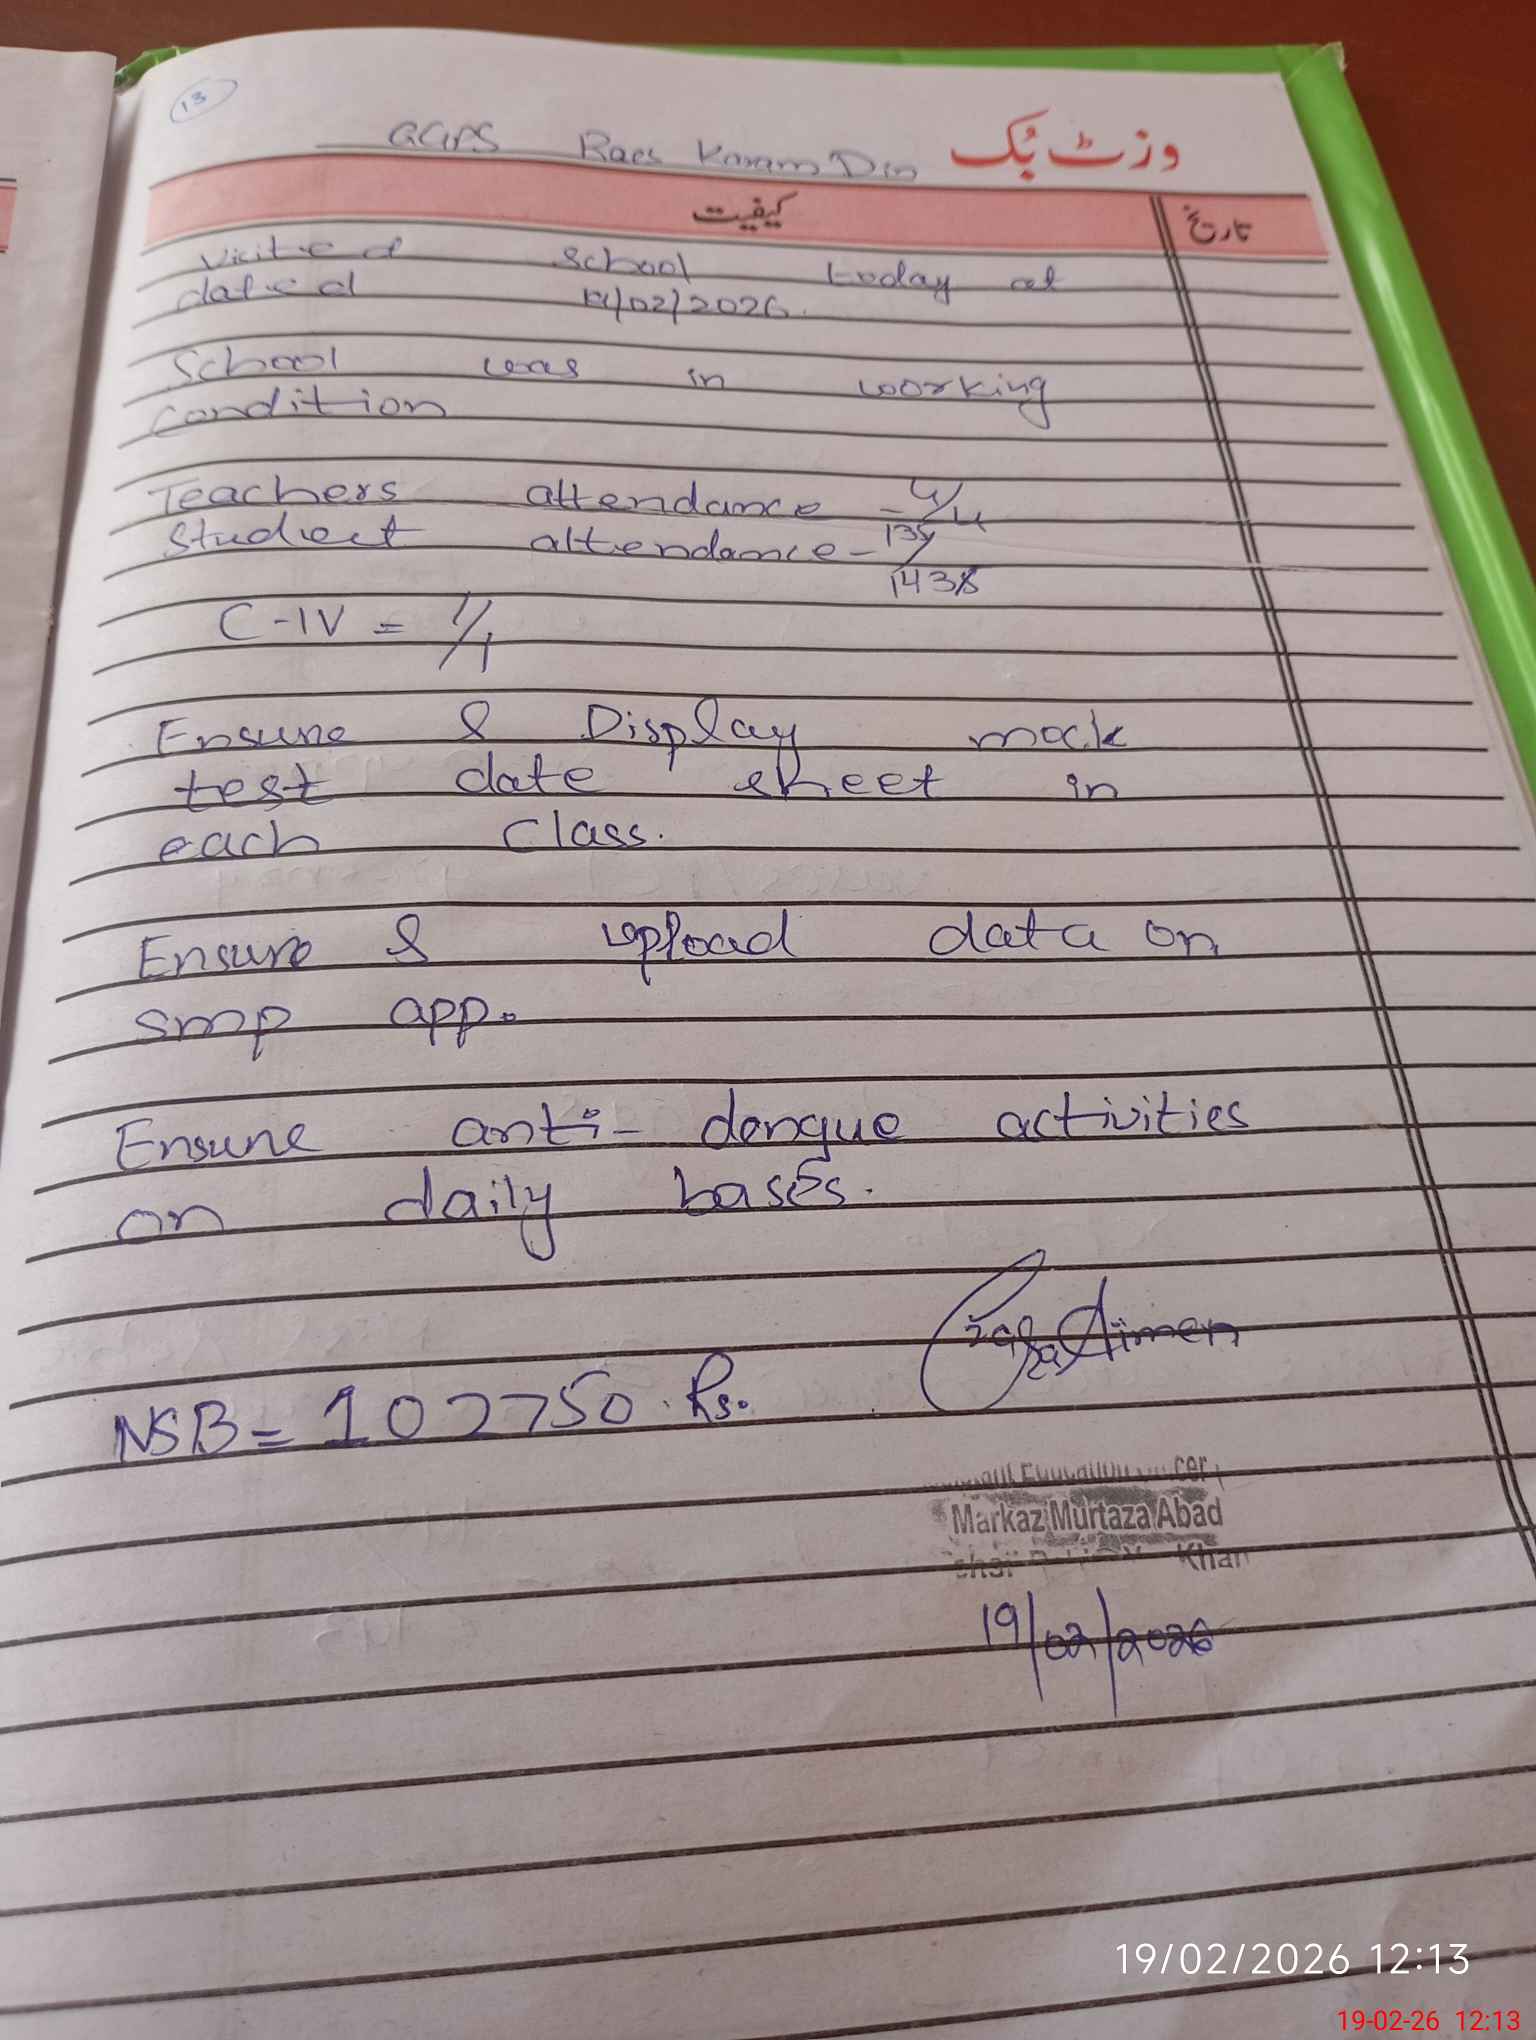 13
GGPS Raes Karam Din وزٹ بُک
کیفیت تاریخ
Visited school today at
dated 19/02/2026.
School was in working
condition
Teachers attendance - 4/4
Student attendance -
C-IV = 1/1
Ensure & Display mock
test date sheet in
each Class.
Ensure & upload data on
smp app.
Ensure anti- dengue activities
on daily bases.
Aimen
NSB = 102750 Rs.
Markaz Murtaza Abad
Khan
19/02/2026
19/02/2026 12:13
19-02-26 12:13